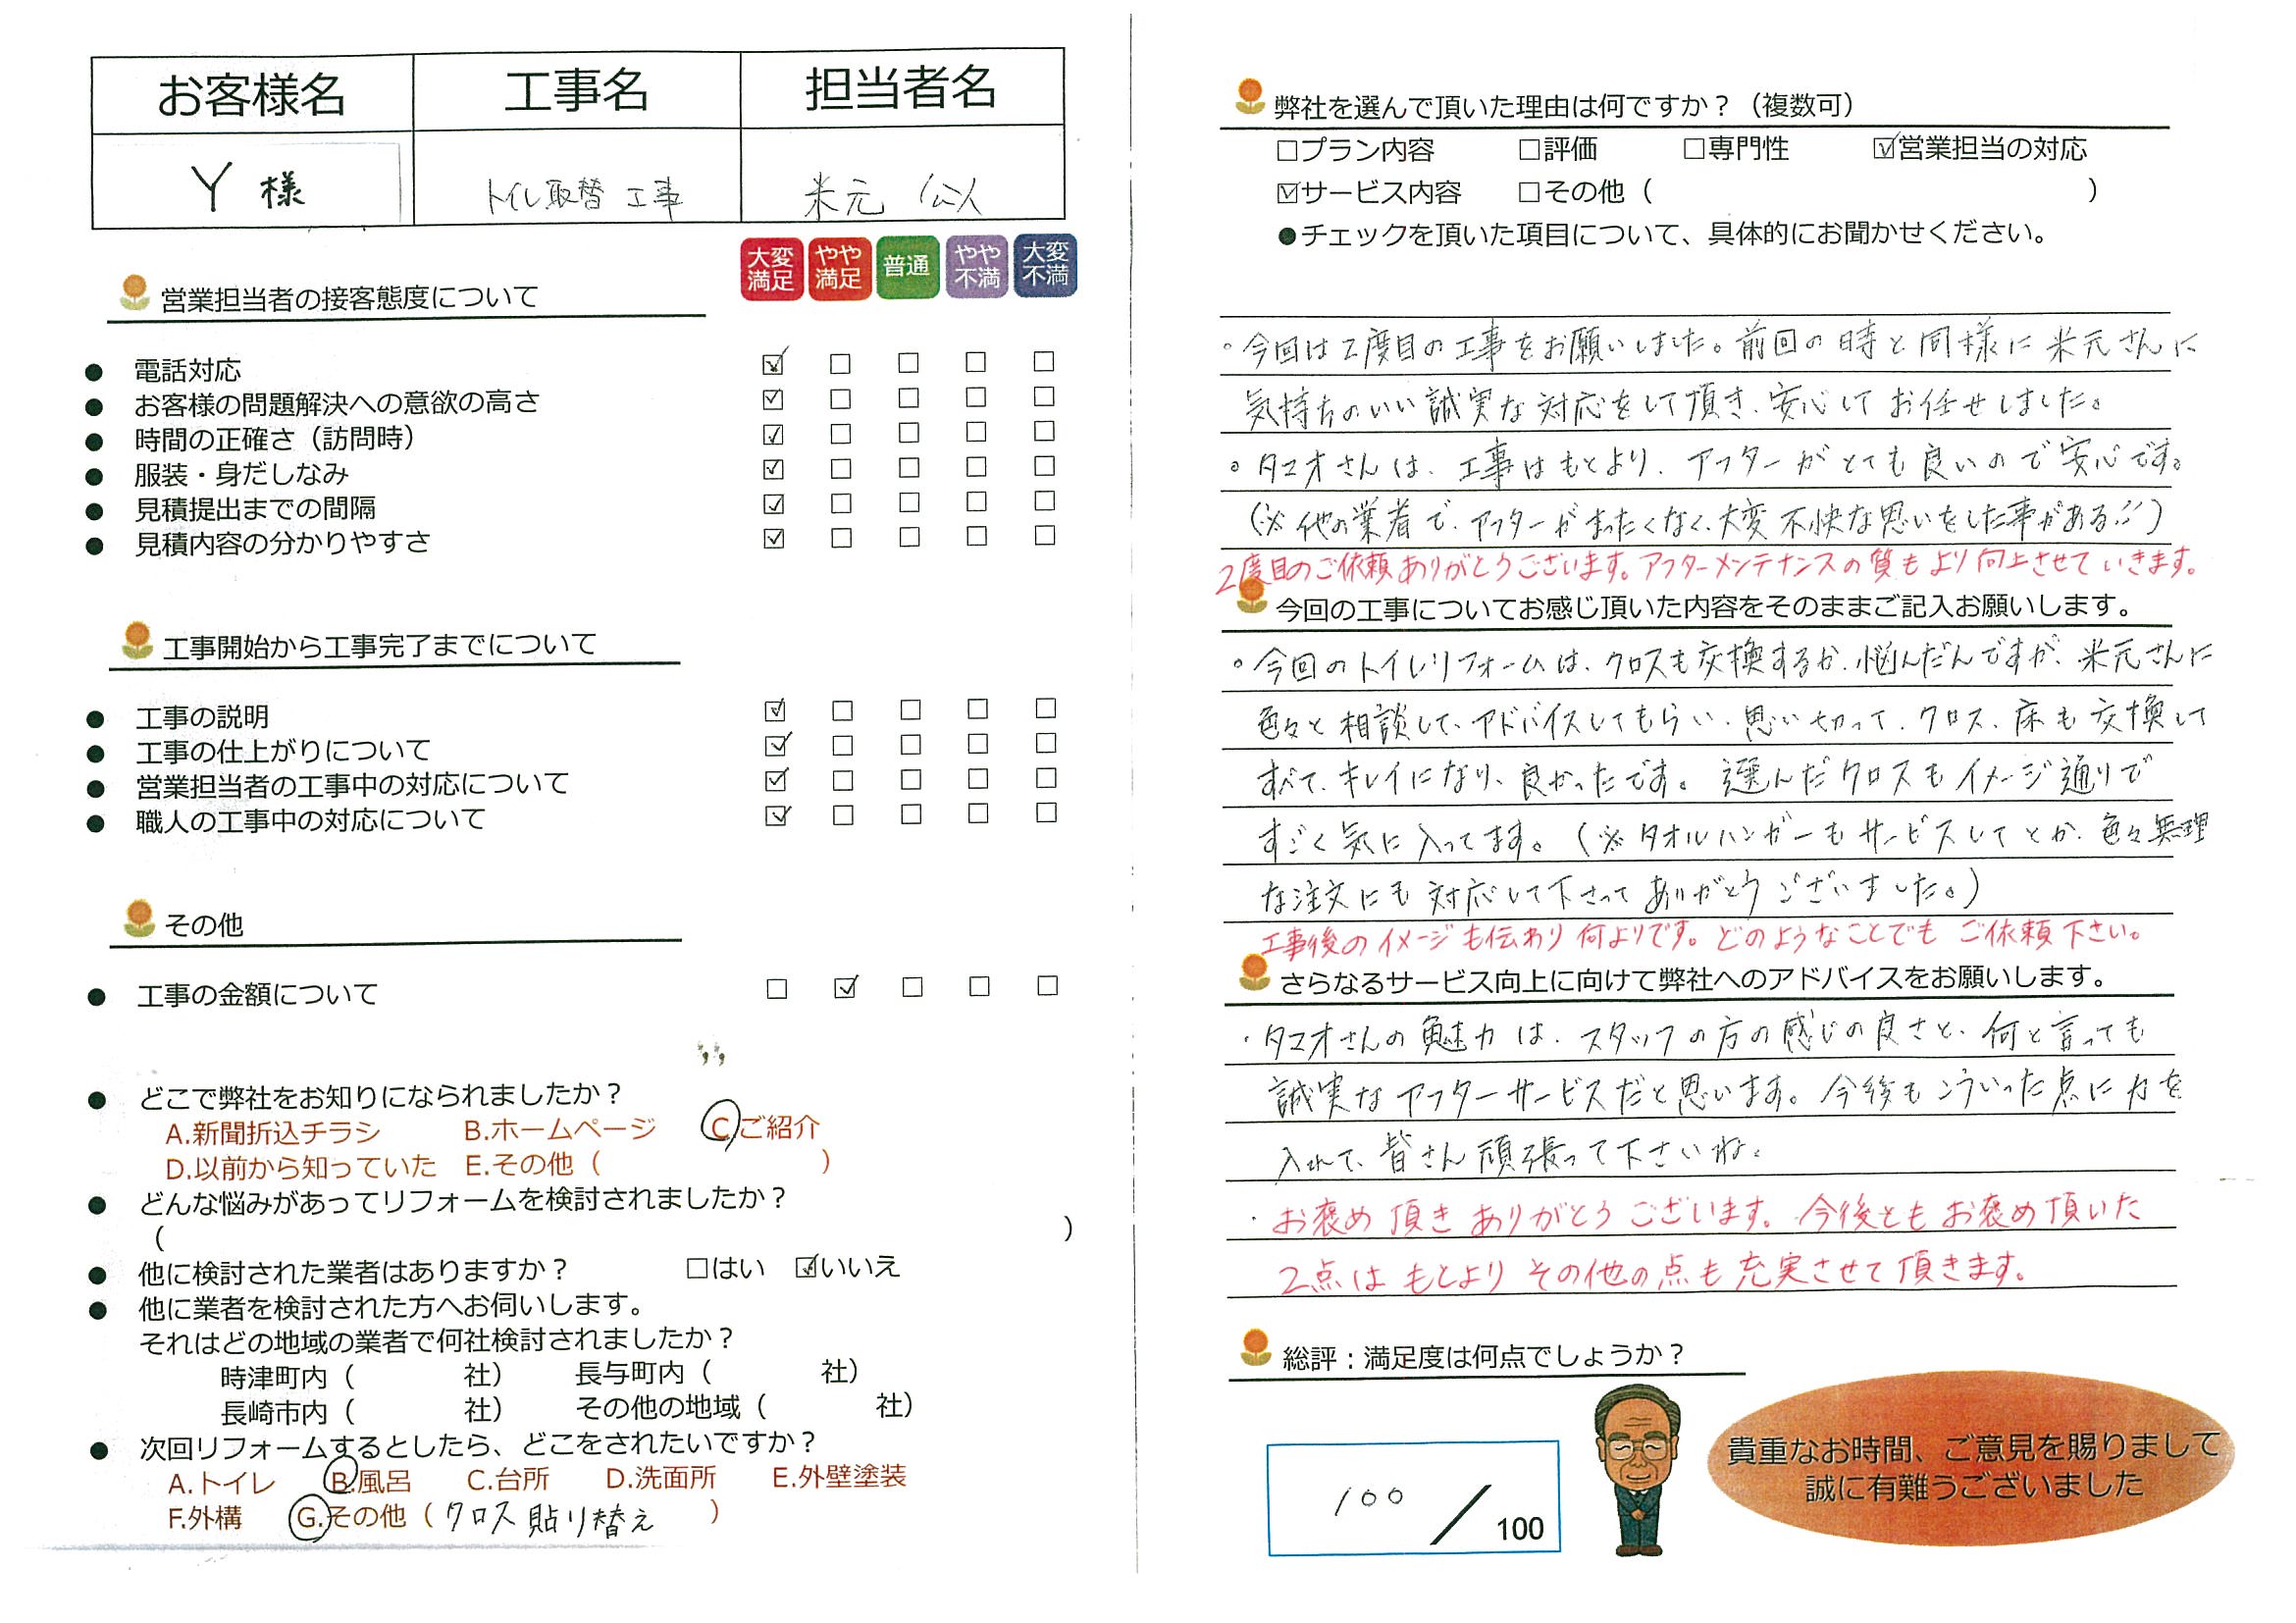 お客様名 工事名 担当者名
Y 様 トイレ取替工事 米元 公人
大変満足 やや満足 普通 やや不満 大変不満
営業担当者の接客態度について
● 電話対応 ☑ □ □ □ □
● お客様の問題解決への意欲の高さ ☑ □ □ □ □
● 時間の正確さ（訪問時） ☑ □ □ □ □
● 服装・身だしなみ ☑ □ □ □ □
● 見積提出までの間隔 ☑ □ □ □ □
● 見積内容の分かりやすさ ☑ □ □ □ □
工事開始から工事完了までについて
● 工事の説明 ☑ □ □ □ □
● 工事の仕上がりについて ☑ □ □ □ □
● 営業担当者の工事中の対応について ☑ □ □ □ □
● 職人の工事中の対応について ☑ □ □ □ □
その他
● 工事の金額について □ ☑ □ □ □
● どこで弊社をお知りになられましたか？
A.新聞折込チラシ B.ホームページ C.ご紹介
D.以前から知っていた E.その他（ ）
● どんな悩みがあってリフォームを検討されましたか？
（ ）
● 他に検討された業者はありますか？ □はい ☑いいえ
● 他に業者を検討された方へお伺いします。
それはどの地域の業者で何社検討されましたか？
時津町内（ 社） 長与町内（ 社）
長崎市内（ 社） その他の地域（ 社）
● 次回リフォームするとしたら、どこをされたいですか？
A.トイレ B.風呂 C.台所 D.洗面所 E.外壁塗装
F.外構 G.その他（クロス貼り替え ）
弊社を選んで頂いた理由は何ですか？（複数可）
□プラン内容 □評価 □専門性 ☑営業担当の対応
☑サービス内容 □その他（ ）
●チェックを頂いた項目について、具体的にお聞かせください。
。今回は2度目の工事をお願いしました。前回の時と同様に米元さんに
気持ちのいい誠実な対応をして頂き、安心してお任せしました。
。タマオさんは、工事はもとより、アフターがとても良いので安心です。
（※他の業者で、アフターがまったくなく、大変不快な思いをした事がある‥）
2度目のご依頼ありがとうございます。アフターメンテナンスの質もより向上させていきます。
今回の工事についてお感じ頂いた内容をそのままご記入お願いします。
。今回のトイレリフォームは、クロスも交換するか、悩んだんですが、米元さんに
色々と相談して、アドバイスしてもらい、思い切って、クロス、床も交換して
すべて、キレイになり、良かったです。選んだクロスもイメージ通りで
すごく気に入ってます。（※タオルハンガーもサービスしてとか、色々無理
な注文にも対応して下さってありがとうございました。）
工事後のイメージも伝わり何よりです。どのようなことでもご依頼下さい。
さらなるサービス向上に向けて弊社へのアドバイスをお願いします。
・タマオさんの魅力は、スタッフの方の感じの良さと、何と言っても
誠実なアフターサービスだと思います。今後もこういった点に力を
入れて、皆さん頑張って下さいね。
・お褒め頂きありがとうございます。今後ともお褒め頂いた
2点はもとよりその他の点も充実させて頂きます。
総評：満足度は何点でしょうか？
100／100
貴重なお時間、ご意見を賜りまして
誠に有難うございました